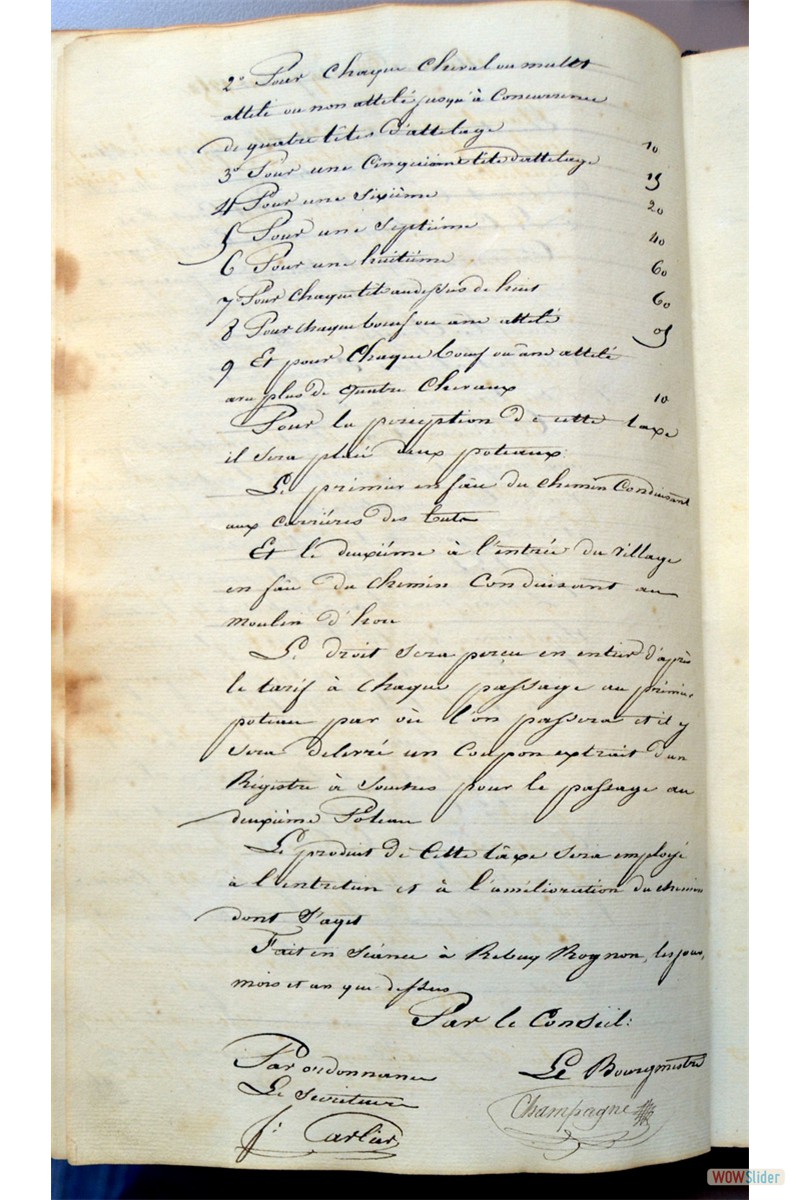 2° Pour chaque cheval ou mulet
attelé ou non attelé jusqu'à concurrence
de quatre têtes d'attelage 10
3° Pour une cinquième tête d'attelage 15
4 Pour une sixième 20
5 Pour une septième 40
6 Pour une huitième 60
7° Pour chaque tête audessus de huit 60
8 Pour chaque boeuf ou âne attelé 05
9 Et pour chaque boeuf ou âne attelé
au plus de quatre chevaux 10
Pour la perception de cette taxe
il sera placé deux poteaux:
Le premier en face du chemin conduisant
aux carrières des
Et le deuxième à l'entrée du village
en face du chemin conduisant au
moulin d'hou
Le droit sera perçu en entier d'après
le tarif à chaque passage au premier
poteau par où l'on passera et il y
sera delivré un coupon extrait d'un
Registre à souches pour le passage au
deuxième Poteau
Le produit de cette tâxe sera employé
à l'entretien et à l'amélioration du chemin
dont s'agit
Fait en séance à Rebecq Rognon, les jour,
mois et an que dessus
Par le Conseil:
Par ordonnance Le Bourgmestre
Le secrétaire Champagne
J. Carlier
WOWSlider